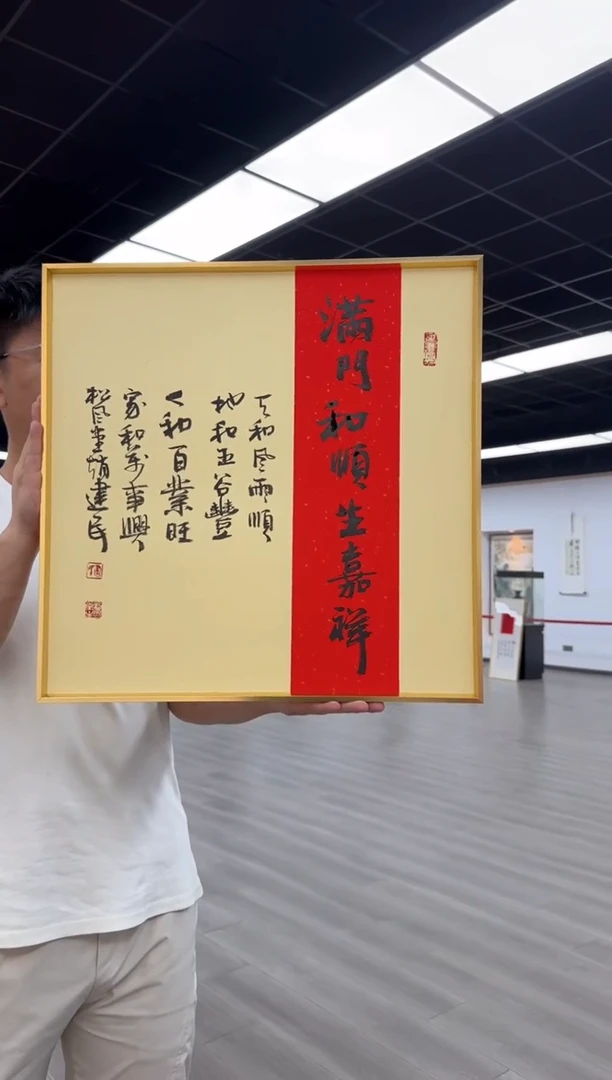 滿門和順生嘉祥
天和風雨順
地和五谷豐
人和百業旺
家和萬事興
松風堂趙建民